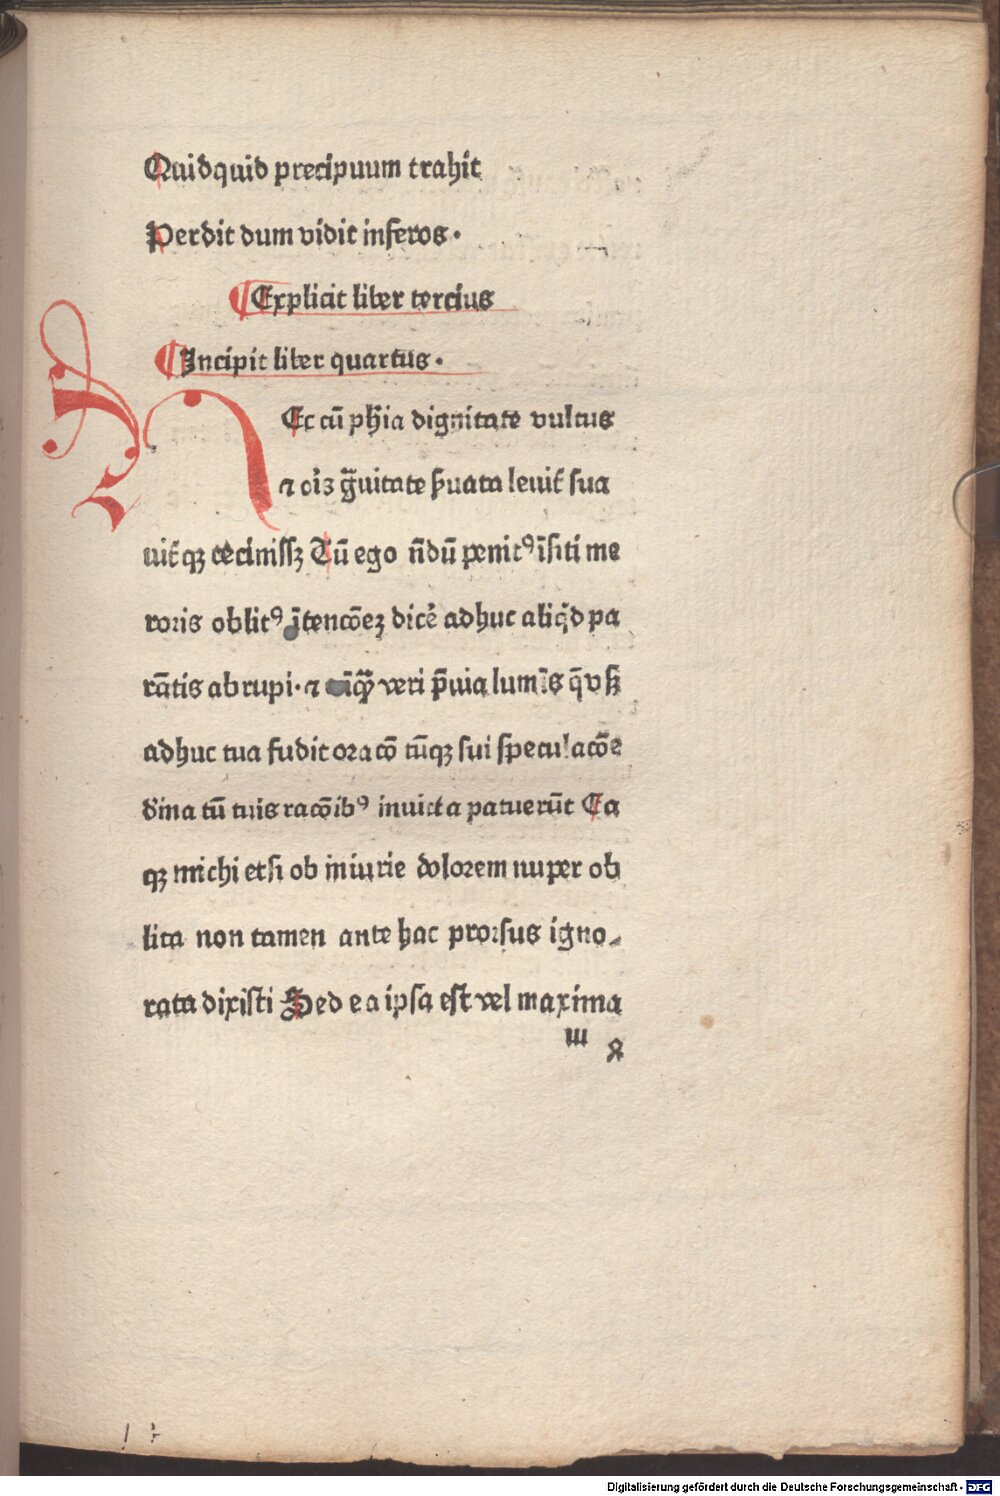 Quidquid precipuum trahit
Perdit dum vidit inferos·
¶Explicit liber tercius
¶Incipit liber quartus·
HEc cū ph̄ia dignitate vultus
⁊ oꝛ̄is g̃uitate ẜuata leuit̄ sua
uit̄qꝫ cēcinissꝫ Tū ego n̄dū penitꝰ īsiti me
roris oblitꝰ ītencōeꝫ dicē adhuc aliq̇d pa
rātis abrupi·⁊ veri p̄uia lumīs q̄ vsꝫ
adhuc tua fudit oꝛacō tūqꝫ sui speculacōe
dīna tū tuis racōibꝰ inuicta patuerūt Ea
qꝫ michi etsi ob iniurie dolorem nuper ob
lita non tamen ante hac proꝛsus igno⸗
rata dixisti Sed ea ipsa est vel maxima
Digitalisierung gefördert durch die Deutsche Forschungsgemeinschaft · DFG